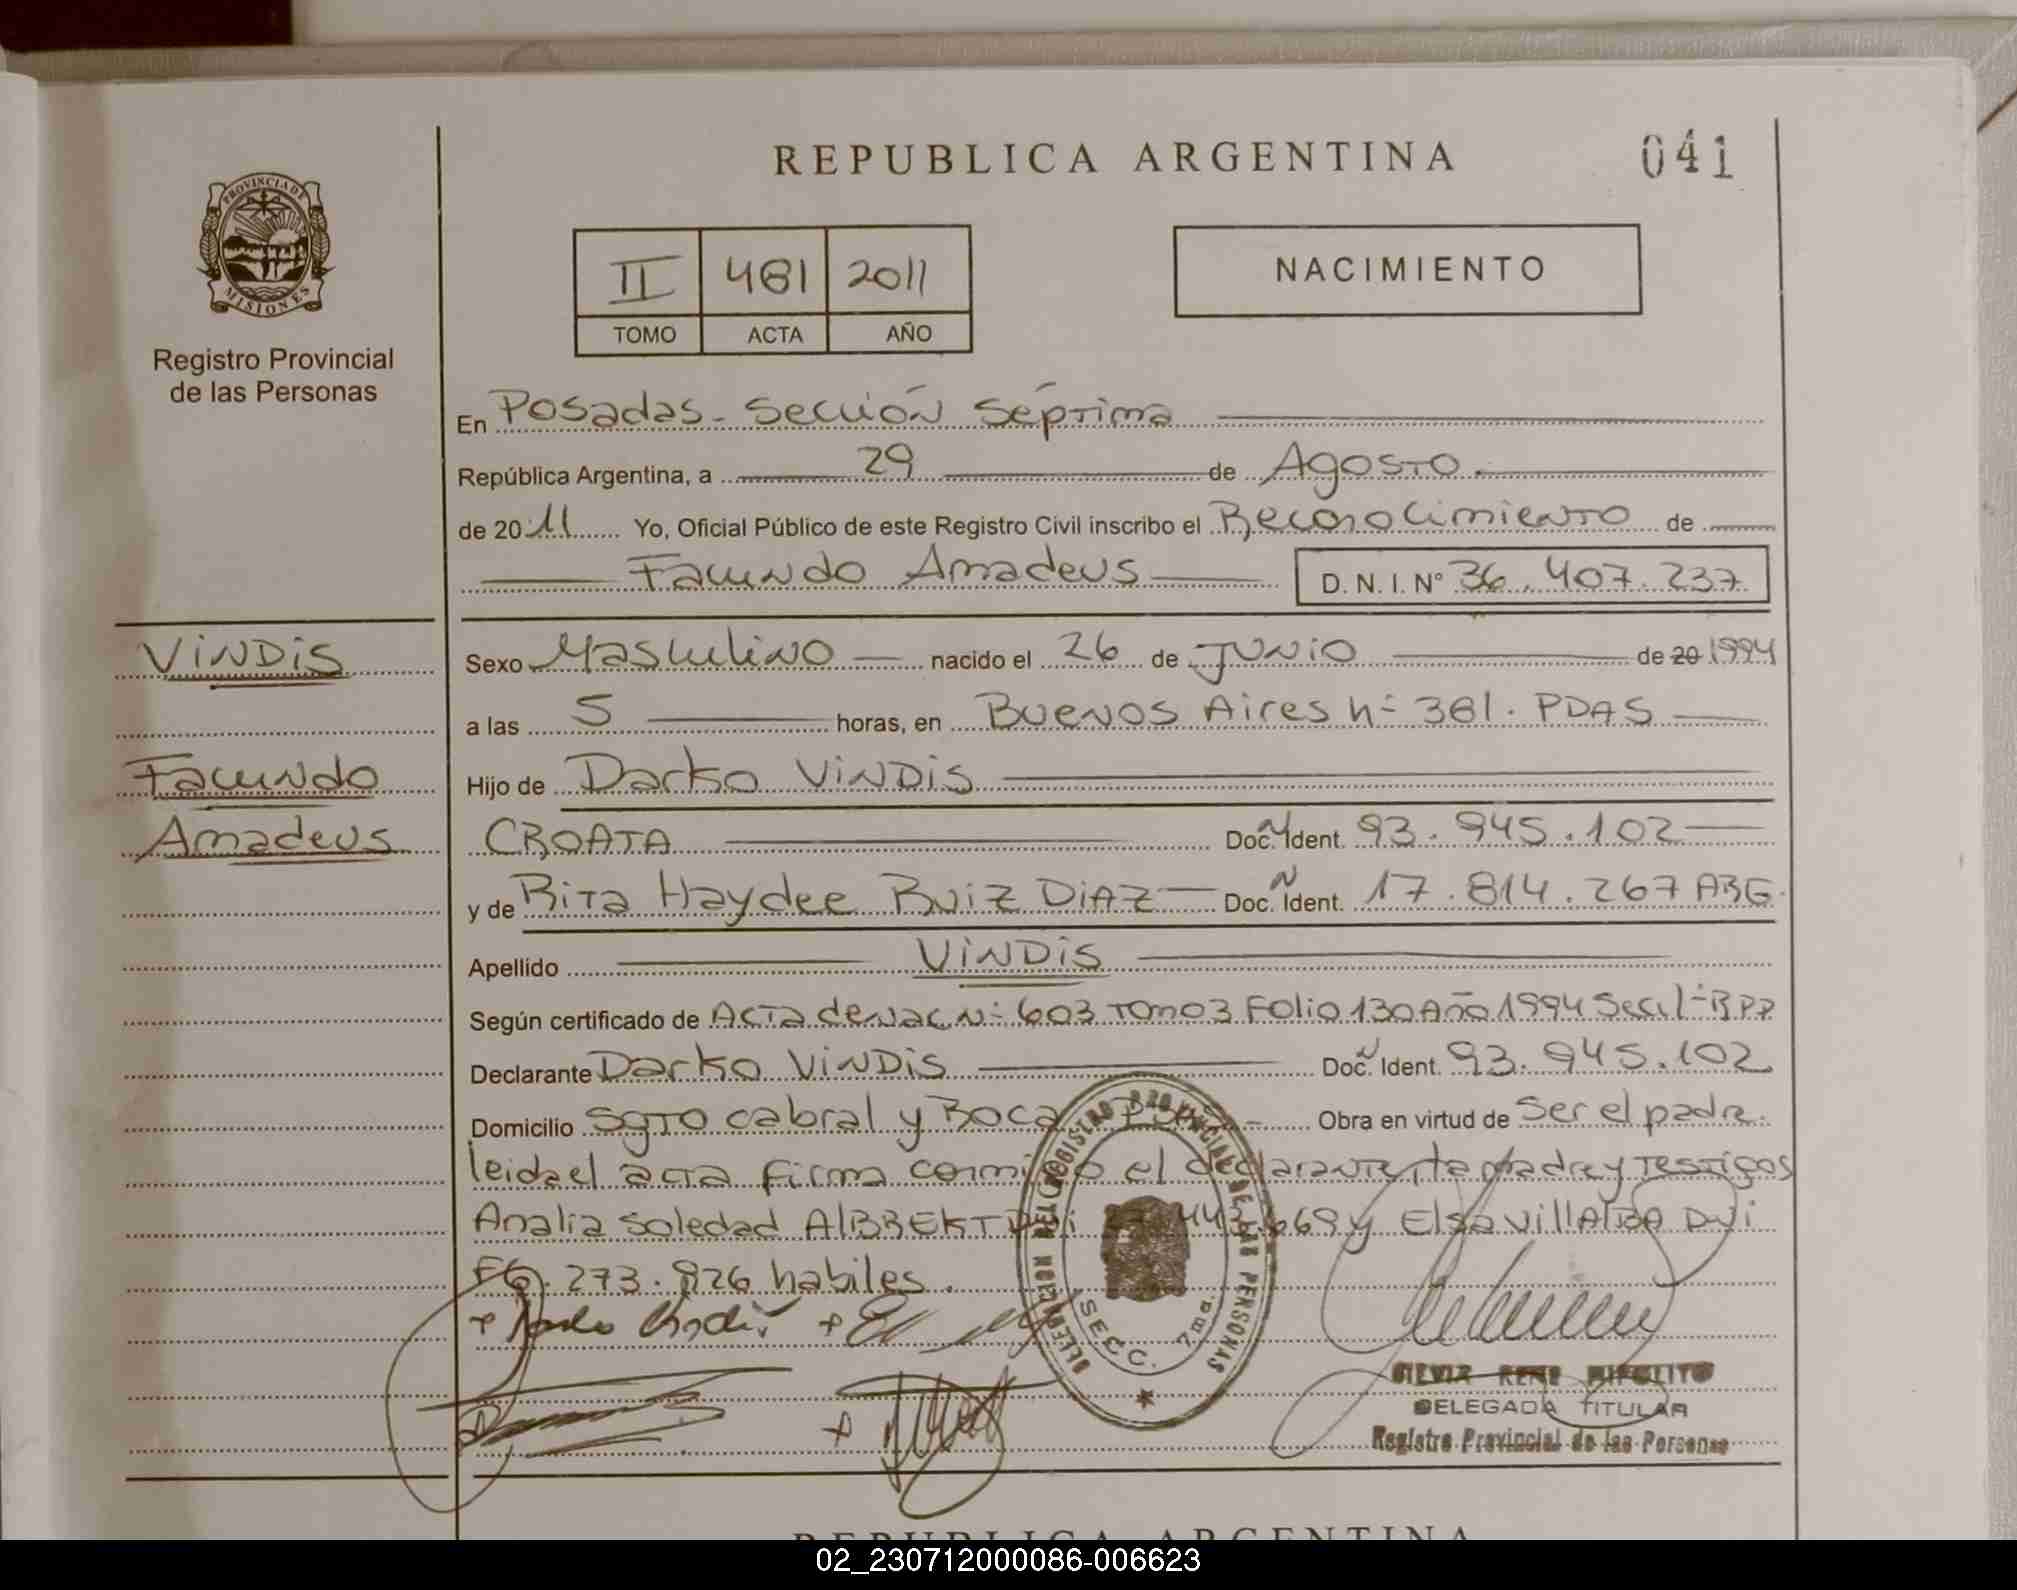 REPUBLICA ARGENTINA
041
PROVINCIA DE
MISIONES
Registro Provincial
de las Personas
II 481 2011
TOMO ACTA AÑO
NACIMIENTO
En Posadas - Sección Séptima
República Argentina, a 29 de Agosto
de 2011 Yo, Oficial Público de este Registro Civil inscribo el Reconocimiento de
Facundo Amadeus D.N.I. Nº 36.407.237
VINDIS
Facundo
Amadeus
Sexo Masculino nacido el 26 de Junio de 20 1994
a las 5 horas, en Buenos Aires Nº 381. PDAS
Hijo de Darko VINDIS
CROATA Doc. Ident. 93.945.102
y de Rita Haydee RUIZ DIAZ Doc. Ident. 17.814.267 ARG.
Apellido VINDIS
Según certificado de Acta de Nac Nº 603 Tomo 3 Folio 130 Año 1994 Secc 1º RPP
Declarante Darko VINDIS Doc. Ident. 93.945.102
Domicilio Sgto Cabral y Boca Obra en virtud de Ser el padre.
leida el acta firma conmigo el declarante, la madre y testigos
Analia Soledad ALBREKT DNI y Elsa VILLALBA DNI
273.926 habiles.
DELEGACION DEL REGISTRO PROVINCIAL DE LAS PERSONAS
SECC. 7ma.
RENE HIPOLITO
DELEGADA TITULAR
Registro Provincial de las Personas
REPUBLICA ARGENTINA
02_230712000086-006623